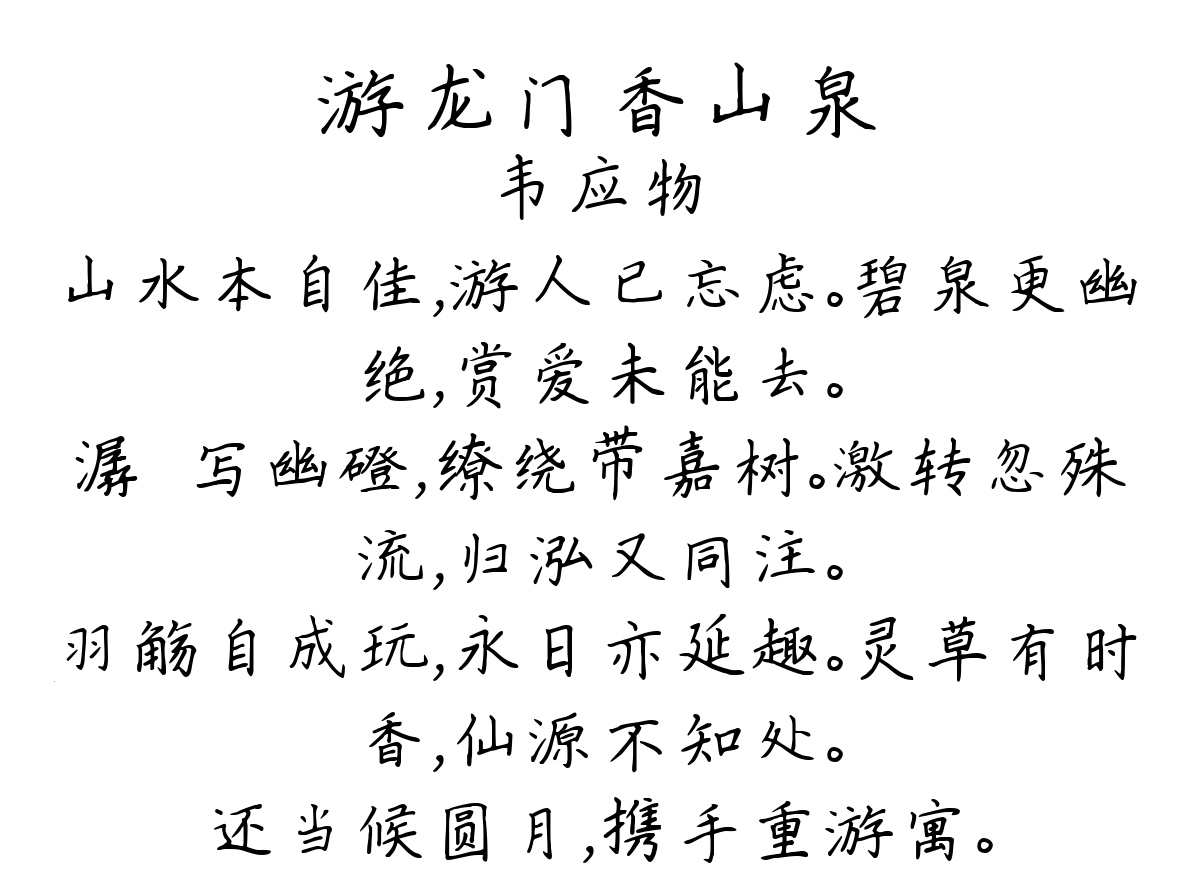 游龙门香山泉
韦应物
山水本自佳,游人已忘虑。碧泉更幽
绝,赏爱未能去。
潺 写幽磴,缭绕带嘉树。激转忽殊
流,归泓又同注。
羽觞自成玩,永日亦延趣。灵草有时
香,仙源不知处。
还当候圆月,携手重游寓。